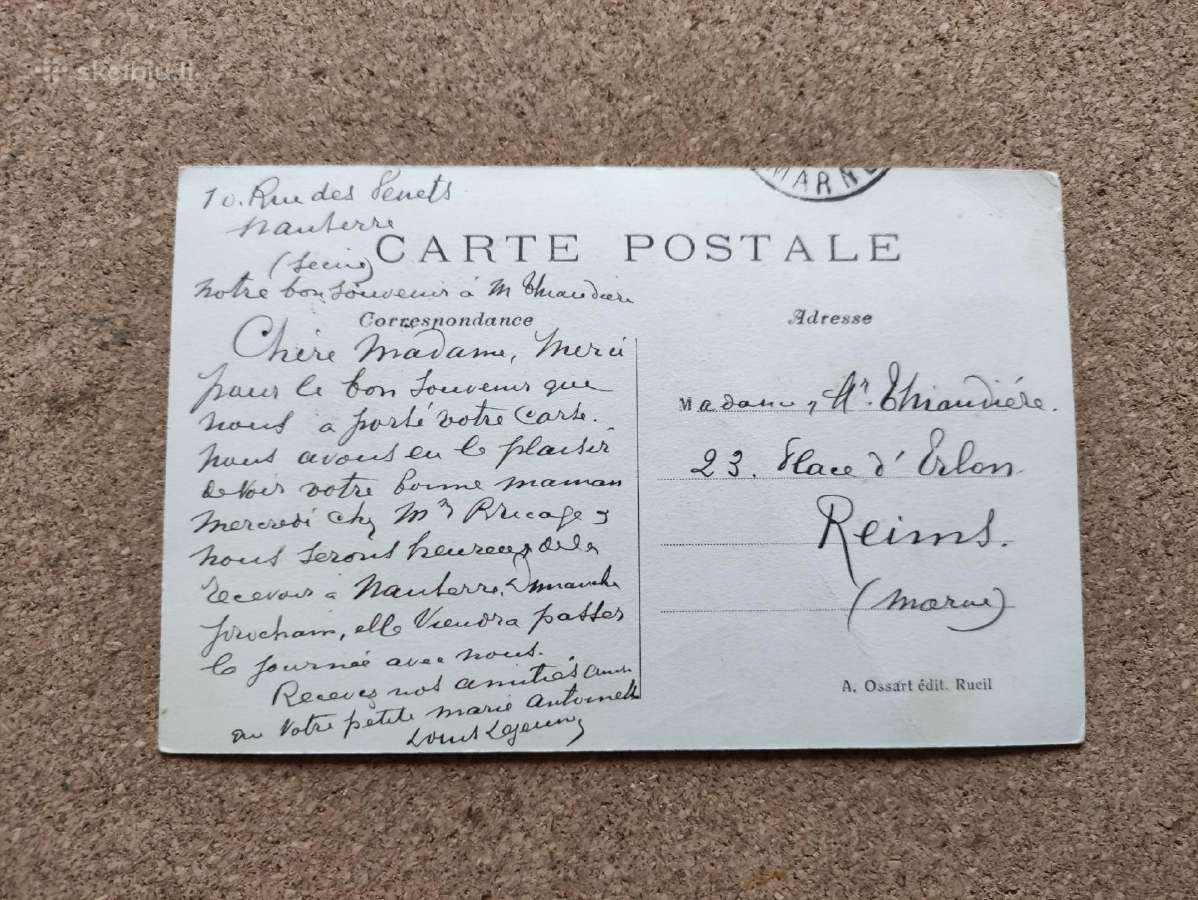 skelbiu.lt
MARNE
10. Rue des Venets
Nanterre
(Seine)
CARTE POSTALE
Notre bon souvenir à M Thiaudière
Correspondance
Chère Madame, Merci
pour le bon souvenir que
nous a porté votre carte.
Nous avons eu le plaisir
de voir votre bonne maman
Mercredi chez Mr Bricage,
nous serons heureux de la
recevoir à Nanterre, Dimanche
prochain, elle viendra passer
la journée avec nous.
Recevez nos amitiés
votre petite Marie Antoinette
Louis Lejeune
Adresse
Madame, Mr. Thiaudière.
23. Place d'Erlon
Reims.
(Marne)
A. Ossart édit. Rueil